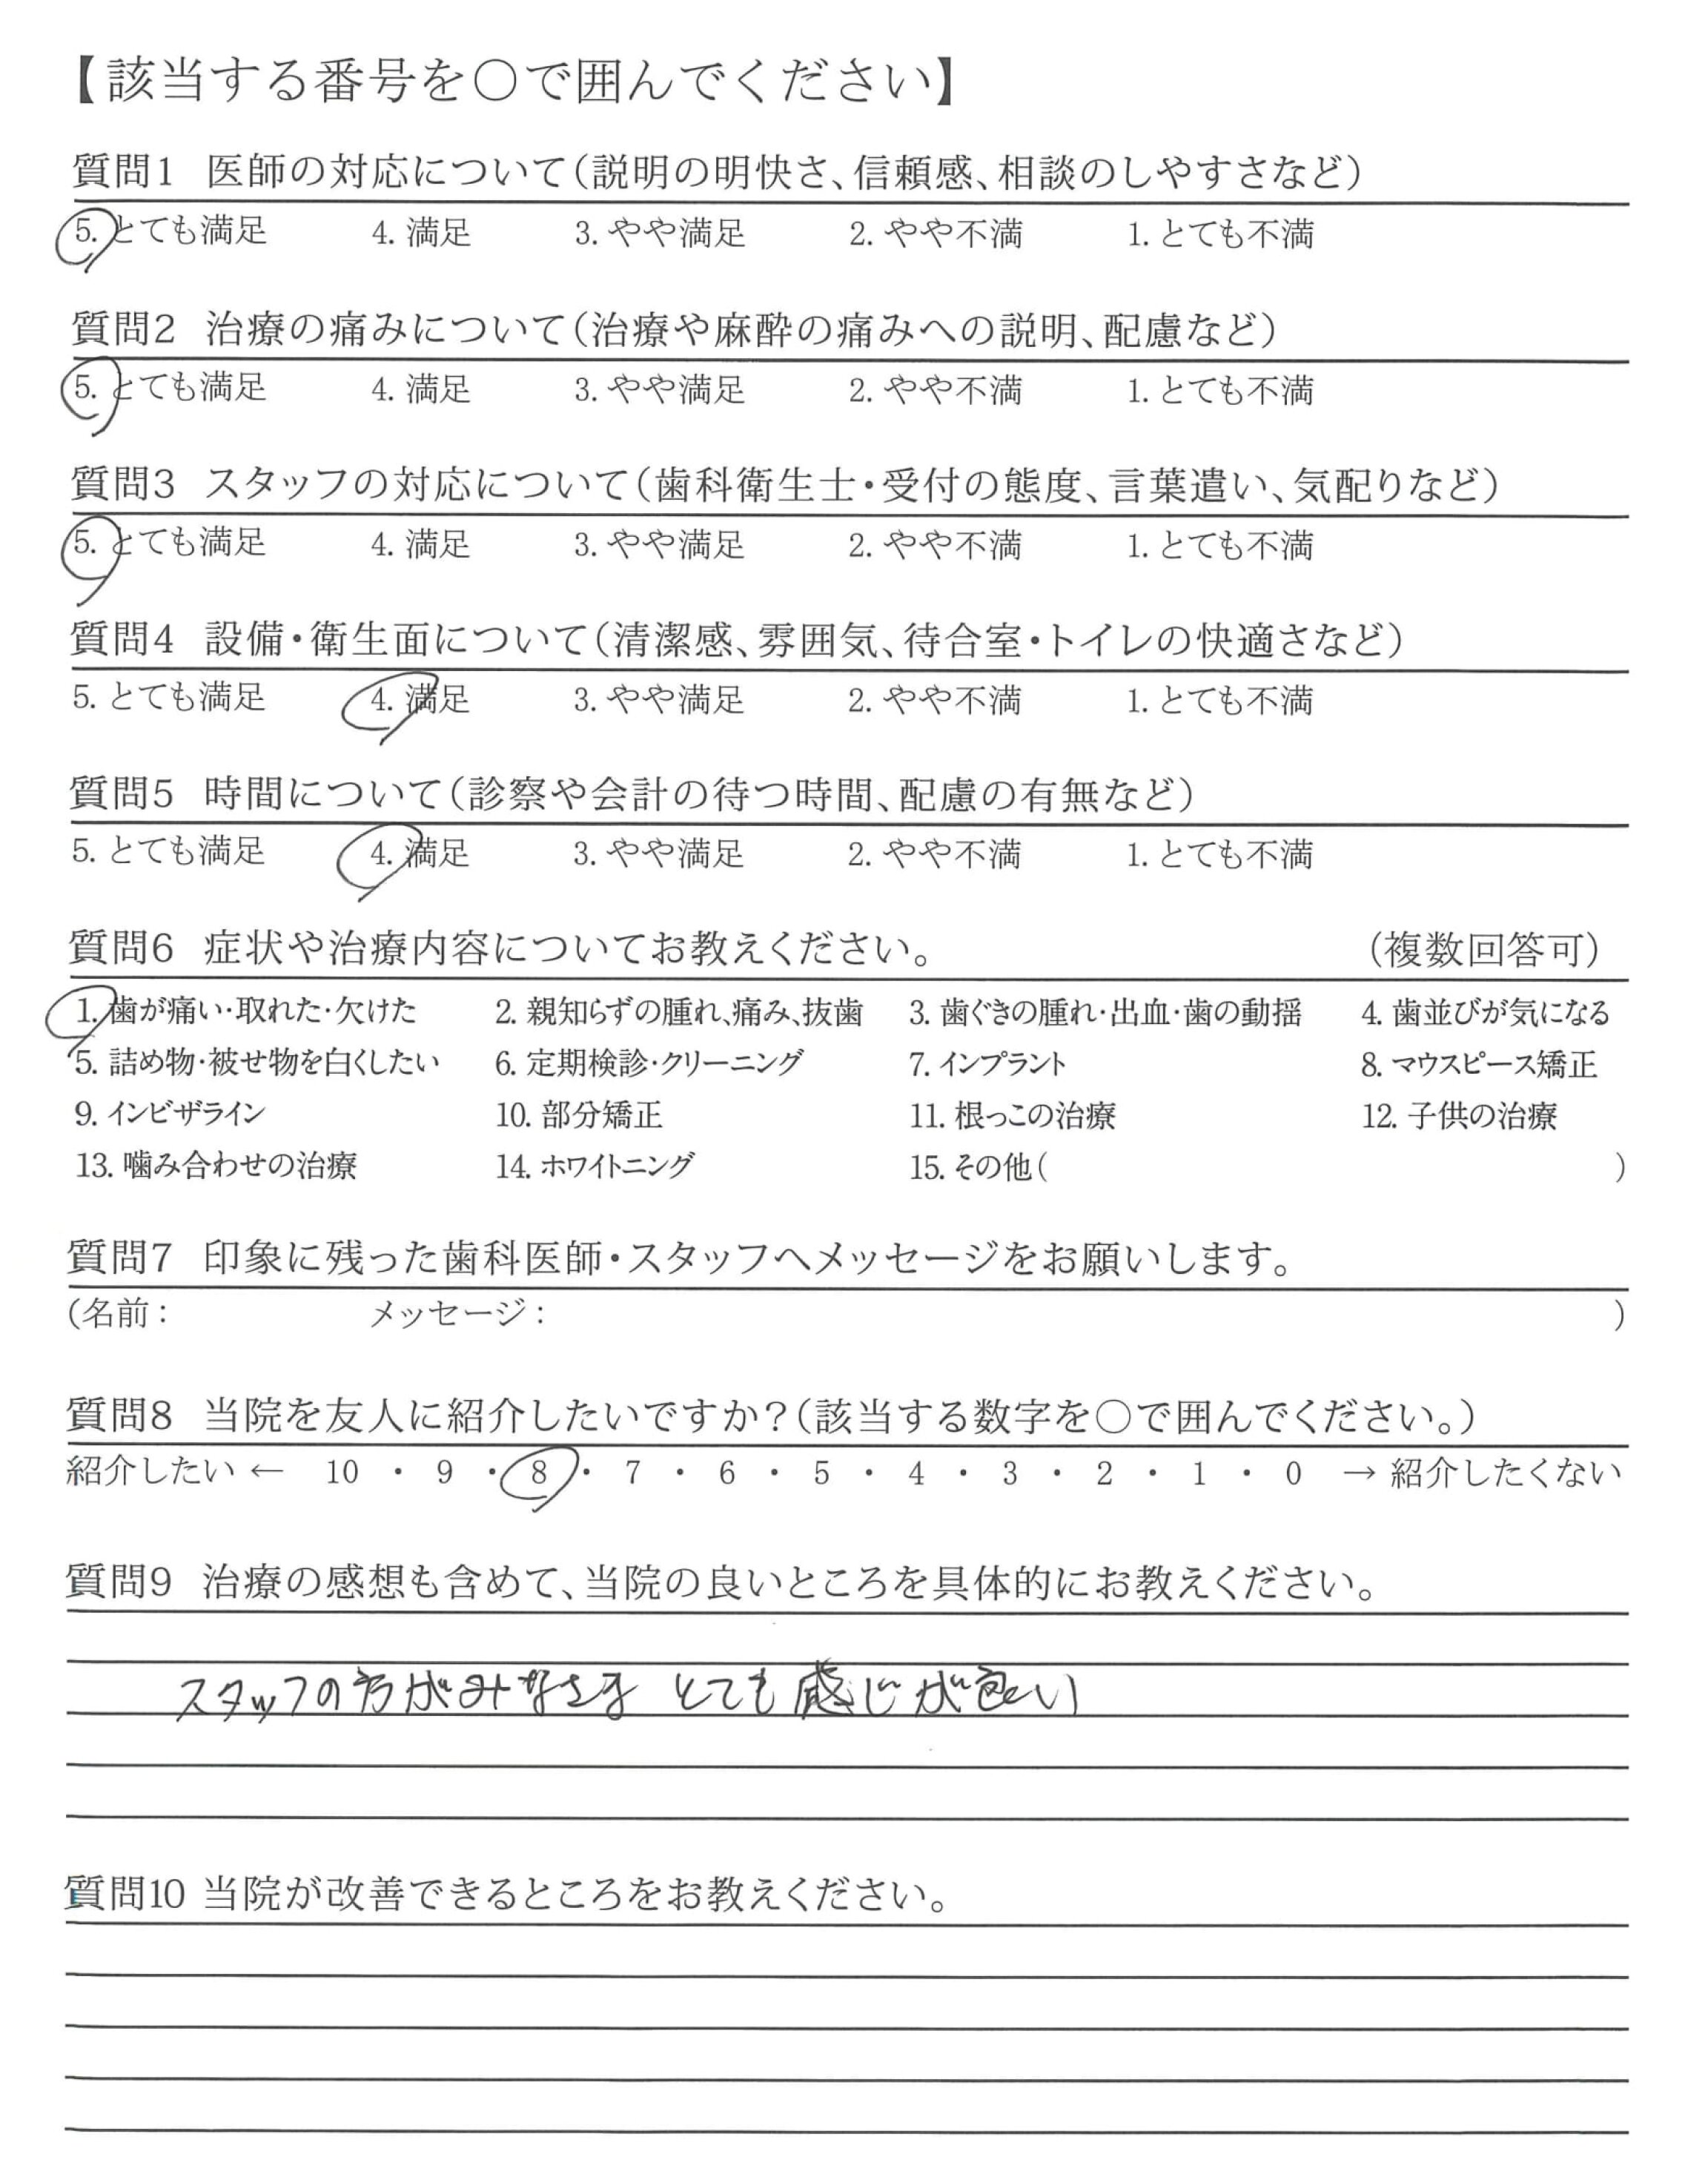 【該当する番号を○で囲んでください】
質問1 医師の対応について(説明の明快さ、信頼感、相談のしやすさなど)
5. とても満足 4. 満足 3. やや満足 2. やや不満 1. とても不満
質問2 治療の痛みについて(治療や麻酔の痛みへの説明、配慮など)
5. とても満足 4. 満足 3. やや満足 2. やや不満 1. とても不満
質問3 スタッフの対応について(歯科衛生士・受付の態度、言葉遣い、気配りなど)
5. とても満足 4. 満足 3. やや満足 2. やや不満 1. とても不満
質問4 設備・衛生面について(清潔感、雰囲気、待合室・トイレの快適さなど)
5. とても満足 4. 満足 3. やや満足 2. やや不満 1. とても不満
質問5 時間について(診察や会計の待つ時間、配慮の有無など)
5. とても満足 4. 満足 3. やや満足 2. やや不満 1. とても不満
質問6 症状や治療内容についてお教えください。 (複数回答可)
1. 歯が痛い・取れた・欠けた 2. 親知らずの腫れ、痛み、抜歯 3. 歯ぐきの腫れ・出血・歯の動揺 4. 歯並びが気になる
5. 詰め物・被せ物を白くしたい 6. 定期検診・クリーニング 7. インプラント 8. マウスピース矯正
9. インビザライン 10. 部分矯正 11. 根っこの治療 12. 子供の治療
13. 噛み合わせの治療 14. ホワイトニング 15. その他( )
質問7 印象に残った歯科医師・スタッフへメッセージをお願いします。
(名前: メッセージ: )
質問8 当院を友人に紹介したいですか?(該当する数字を○で囲んでください。)
紹介したい ← 10 ・ 9 ・ 8 ・ 7 ・ 6 ・ 5 ・ 4 ・ 3 ・ 2 ・ 1 ・ 0 → 紹介したくない
質問9 治療の感想も含めて、当院の良いところを具体的にお教えください。
スタッフの方がみなさま とても感じが良い
質問10 当院が改善できるところをお教えください。